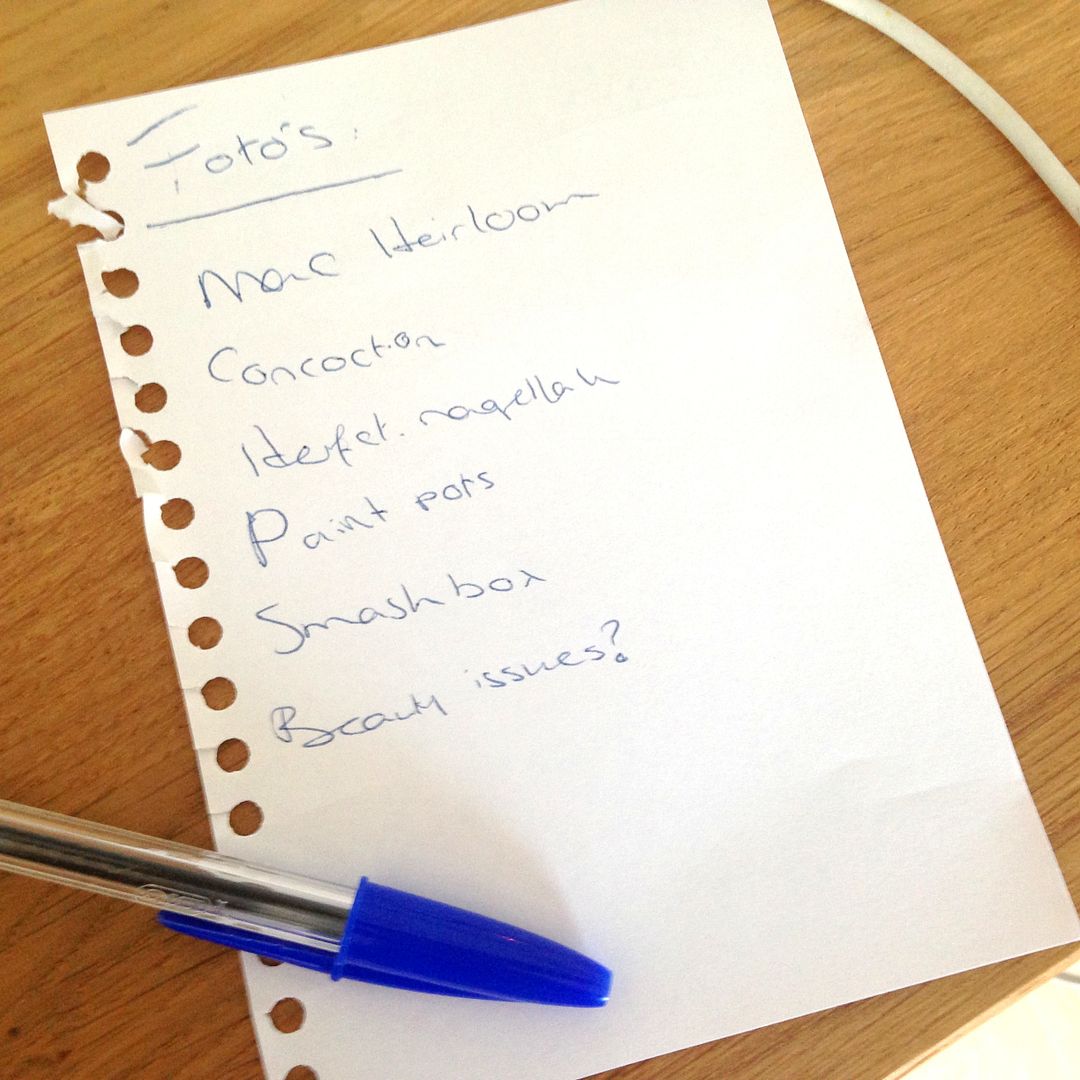 Foto's:
Mac Heirloom
Concoction
Herfst. nagellak
Paint pots
Smashbox
Beauty issues?